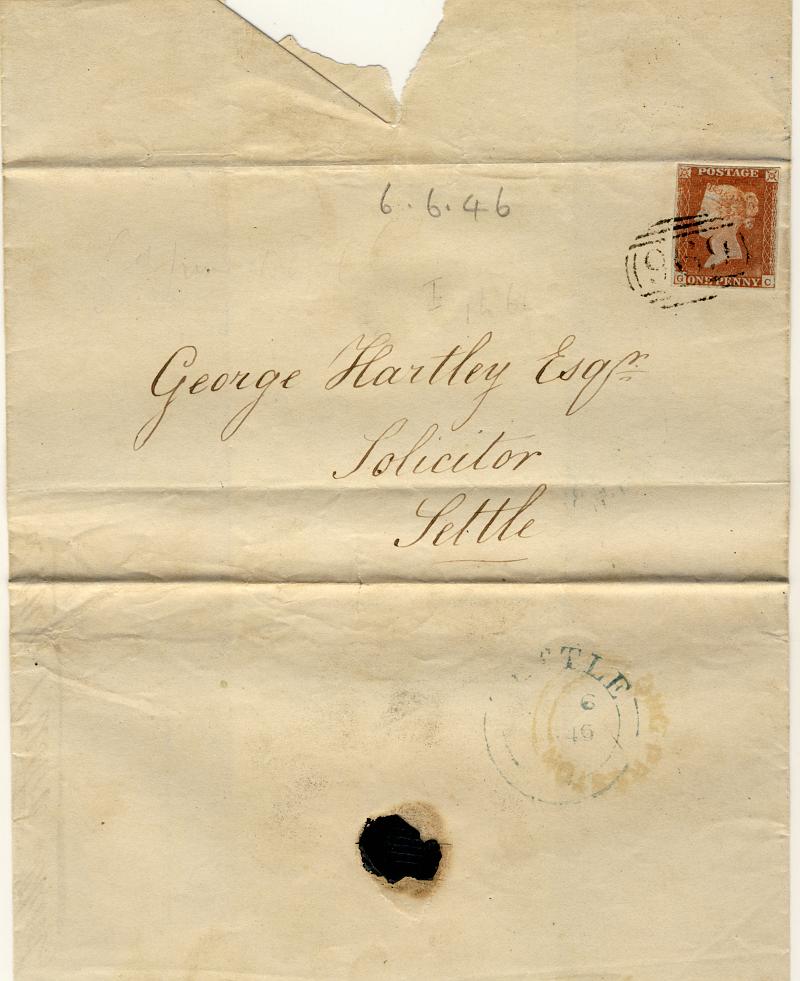 POSTAGE
6.6.46
G ONE PENNY C
George Hartley Esqr
Solicitor
Settle
TLE
6
46